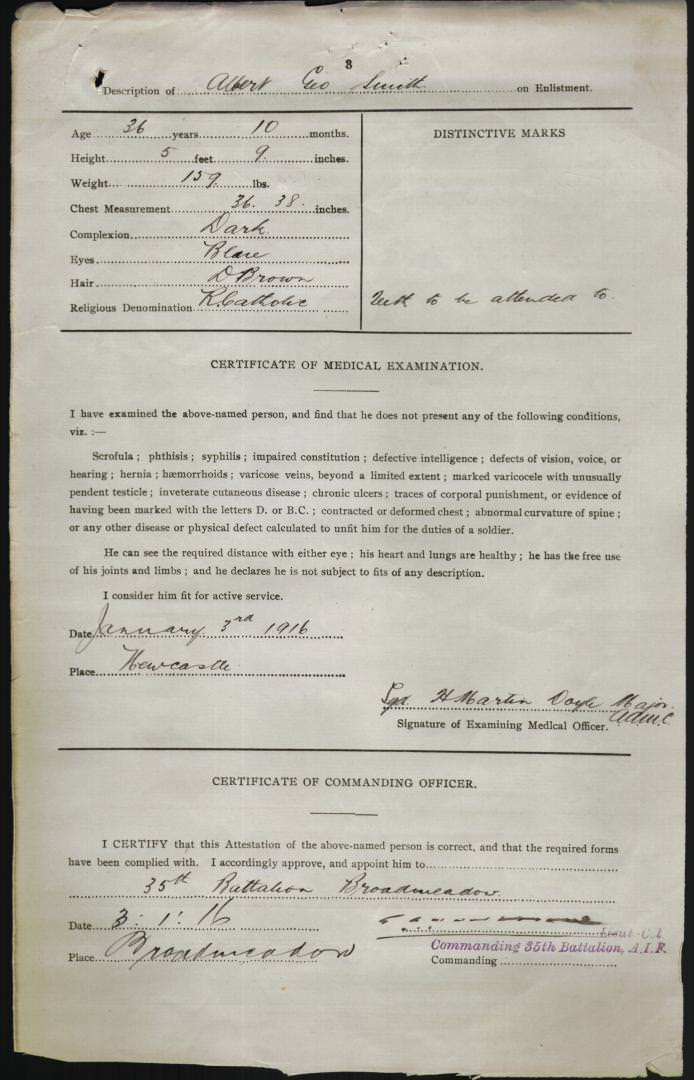 3
Description of Albert Geo Smith on Enlistment.
Age 36 years 10 months.
Height 5 feet 9 inches.
Weight 159 lbs.
Chest Measurement 36. 38. inches.
Complexion Dark
Eyes Blue
Hair D Brown
Religious Denomination R. Catholic
DISTINCTIVE MARKS
Teeth to be attended to.
CERTIFICATE OF MEDICAL EXAMINATION.
I have examined the above-named person, and find that he does not present any of the following conditions,
viz. :—
Scrofula ; phthisis ; syphilis ; impaired constitution ; defective intelligence ; defects of vision, voice, or
hearing ; hernia ; hæmorrhoids ; varicose veins, beyond a limited extent ; marked varicocele with unusually
pendent testicle ; inveterate cutaneous disease ; chronic ulcers ; traces of corporal punishment, or evidence of
having been marked with the letters D. or B.C. ; contracted or deformed chest ; abnormal curvature of spine ;
or any other disease or physical defect calculated to unfit him for the duties of a soldier.
He can see the required distance with either eye ; his heart and lungs are healthy ; he has the free use
of his joints and limbs ; and he declares he is not subject to fits of any description.
I consider him fit for active service.
Date January 3rd 1916
Place Newcastle
Sgd. H Martin Doyle Major.
AAMC
Signature of Examining Medical Officer.
CERTIFICATE OF COMMANDING OFFICER.
I CERTIFY that this Attestation of the above-named person is correct, and that the required forms
have been complied with. I accordingly approve, and appoint him to
35th Battalion Broadmeadow.
Date 3 : 1 : 16
Lieut-Col.
Commanding 35th Battalion, A.I.F.
Place Broadmeadow
Commanding